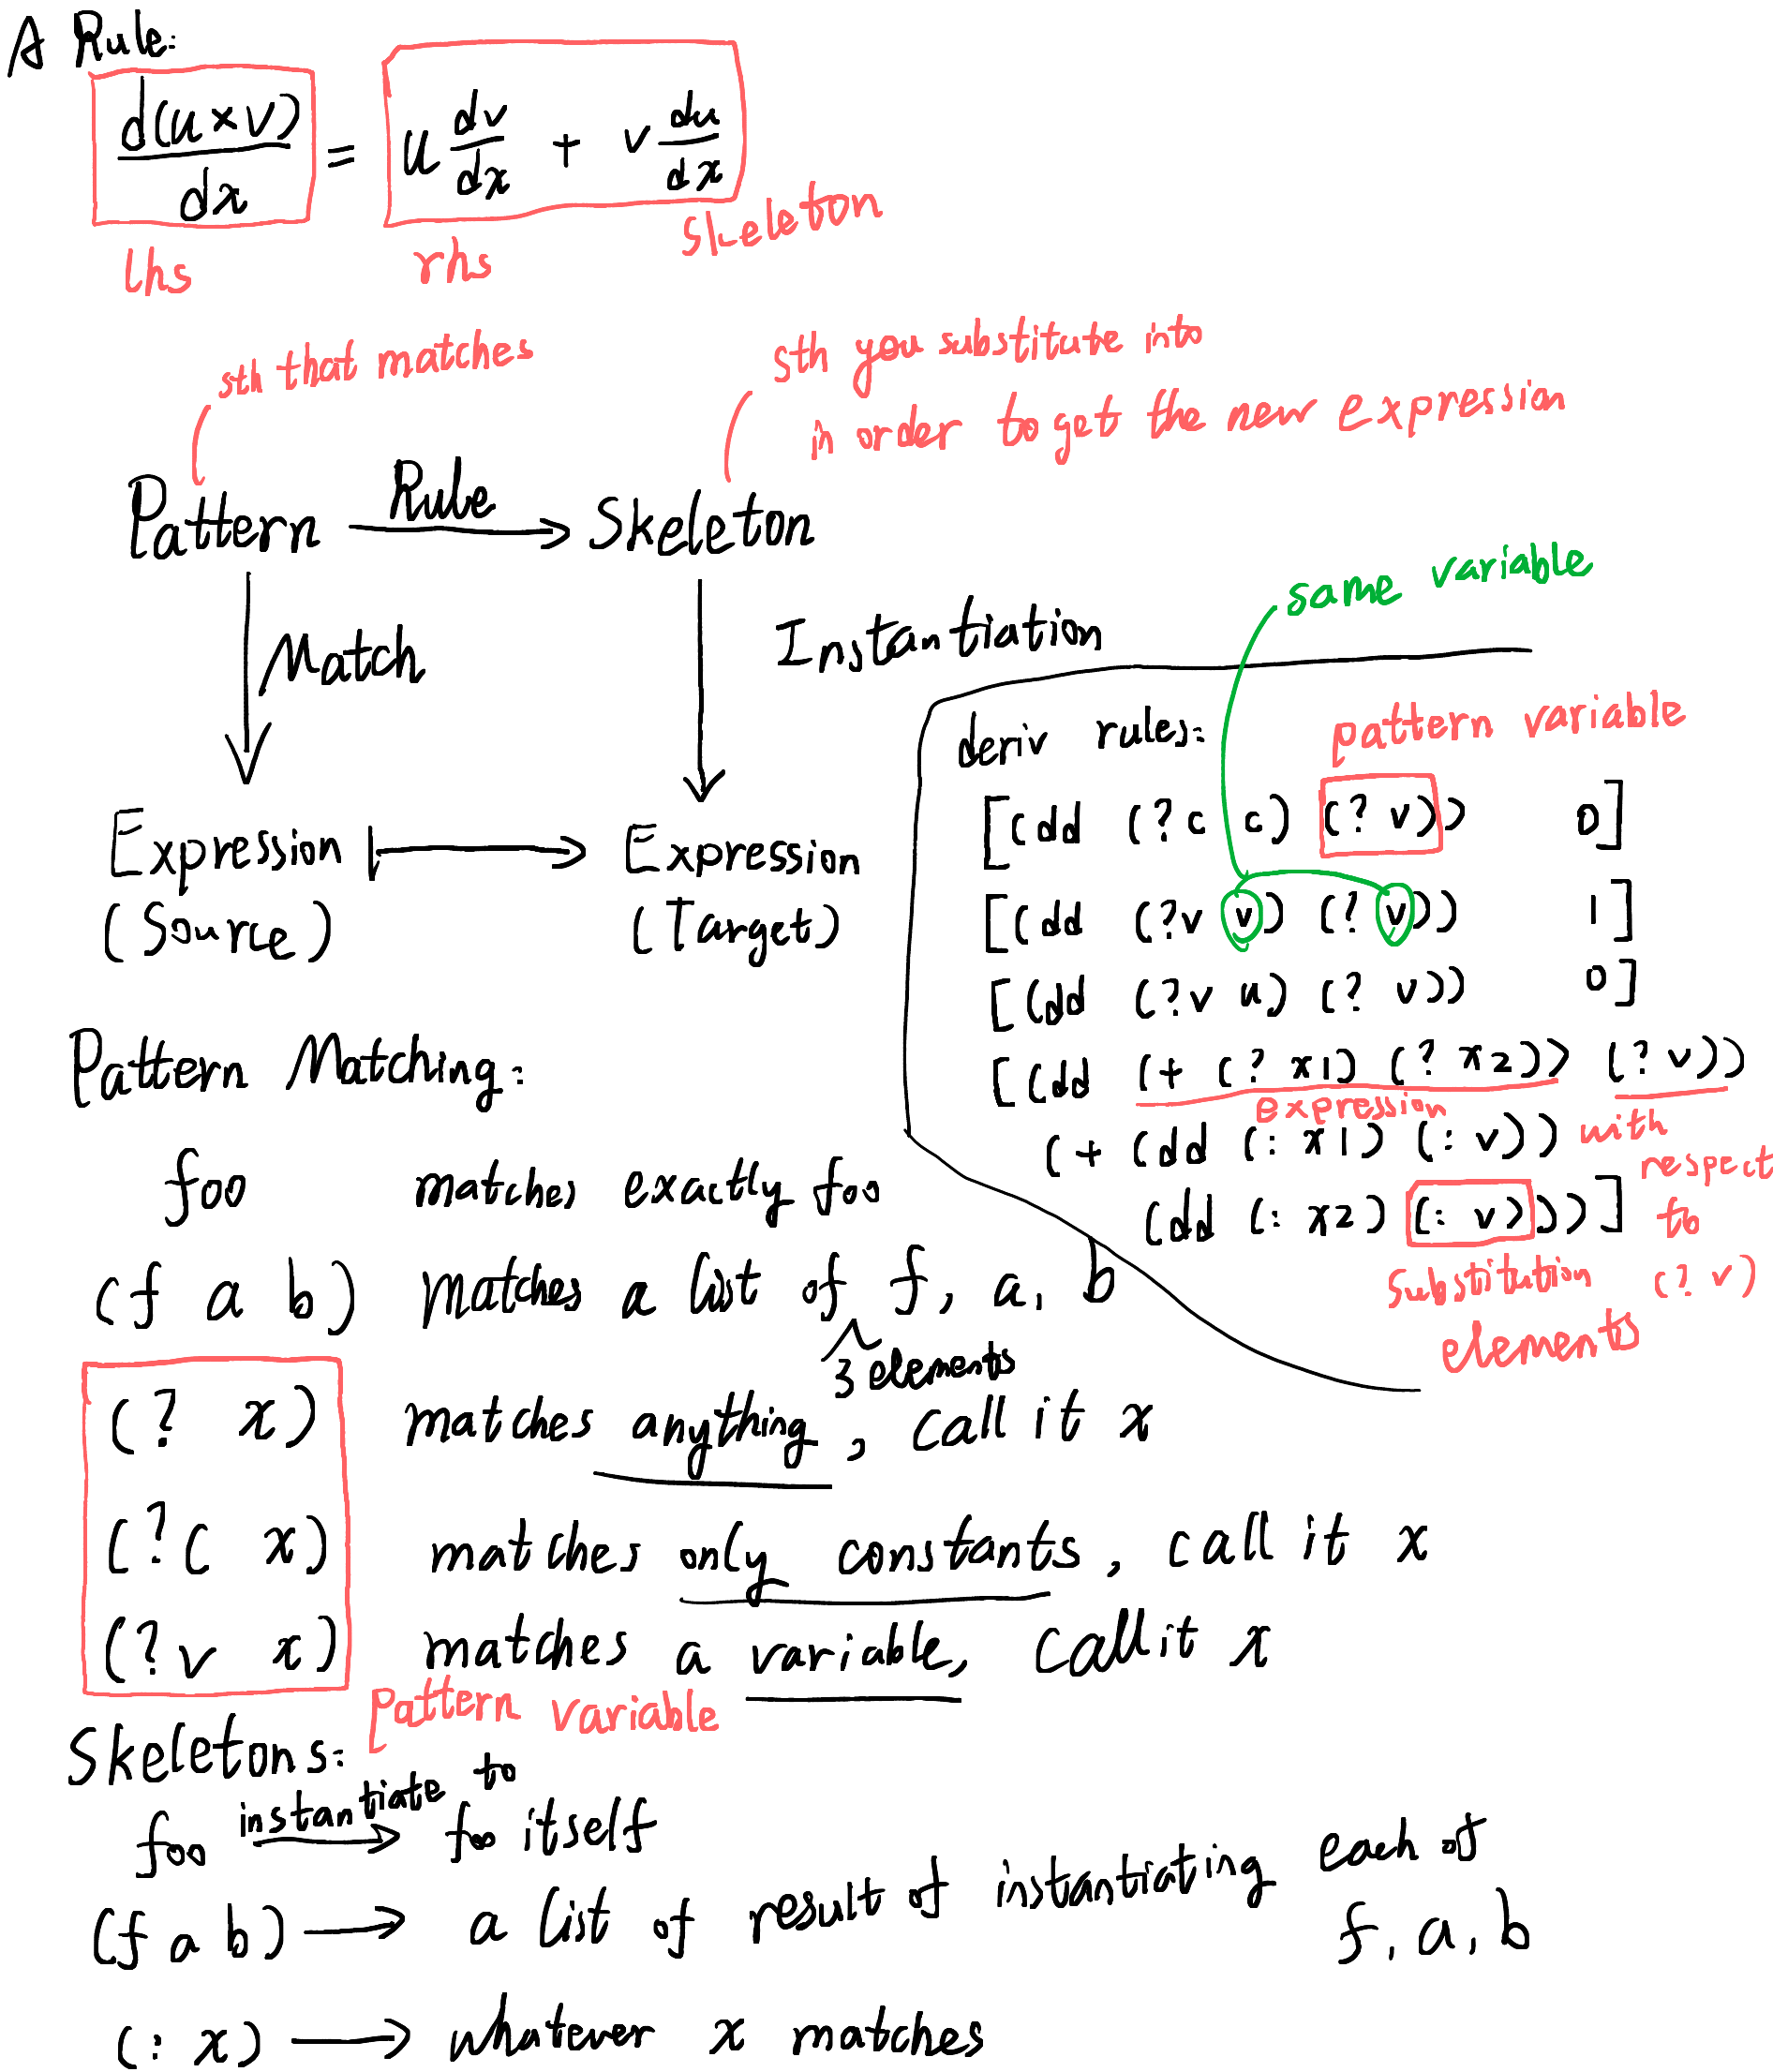 A Rule:
d(u×v)/dx = u dv/dx + v du/dx
lhs
rhs
skeleton
sth that matches
sth you substitute into
in order to get the new expression
Pattern
Rule
Skeleton
Match
Instantiation
Expression
(Source)
Expression
(Target)
same variable
deriv rules:
pattern variable
[(dd (?c c) (? v)) 0]
[(dd (?v v) (? v)) 1]
[(dd (?v u) (? v)) 0]
[(dd (+ (? x1) (? x2)) (? v))
expression
(+ (dd (: x1) (: v))
(dd (: x2) (: v)))]
with
respect
to
(? v)
Substitution
elements
Pattern Matching:
foo matches exactly foo
(f a b) matches a list of f, a, b
3 elements
(? x) matches anything, call it x
(?c x) matches only constants, call it x
(?v x) matches a variable, call it x
Pattern variable
Skeletons:
foo instantiate to foo itself
(f a b) → a list of result of instantiating each of
f, a, b
(: x) → whatever x matches